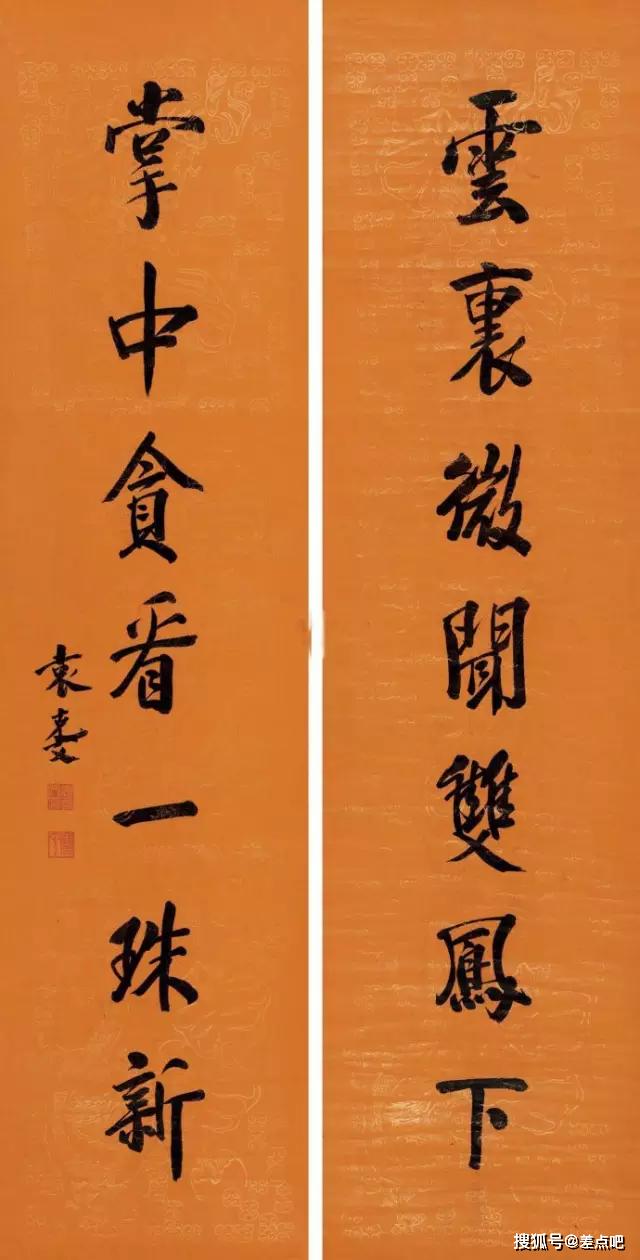 雲裏微聞雙鳳下
掌中貪看一珠新
袁克文
搜狐号@差点吧